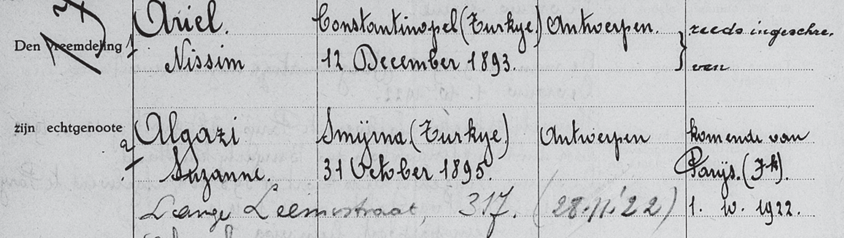 Den vreemdeling 1 Ariel. Constantinopel (Turkye) Antwerpen. } reeds ingeschre.
Nissim 12 December 1893. ven
zijn echtgenoote 2 Algazi Smyrna. (Turkye) Antwerpen komende van
Suzanne. 31 October 1895. Parijs. (Fk).
Lange Leemstraat, 317. (28.11.'22) 1. 10. 1922.